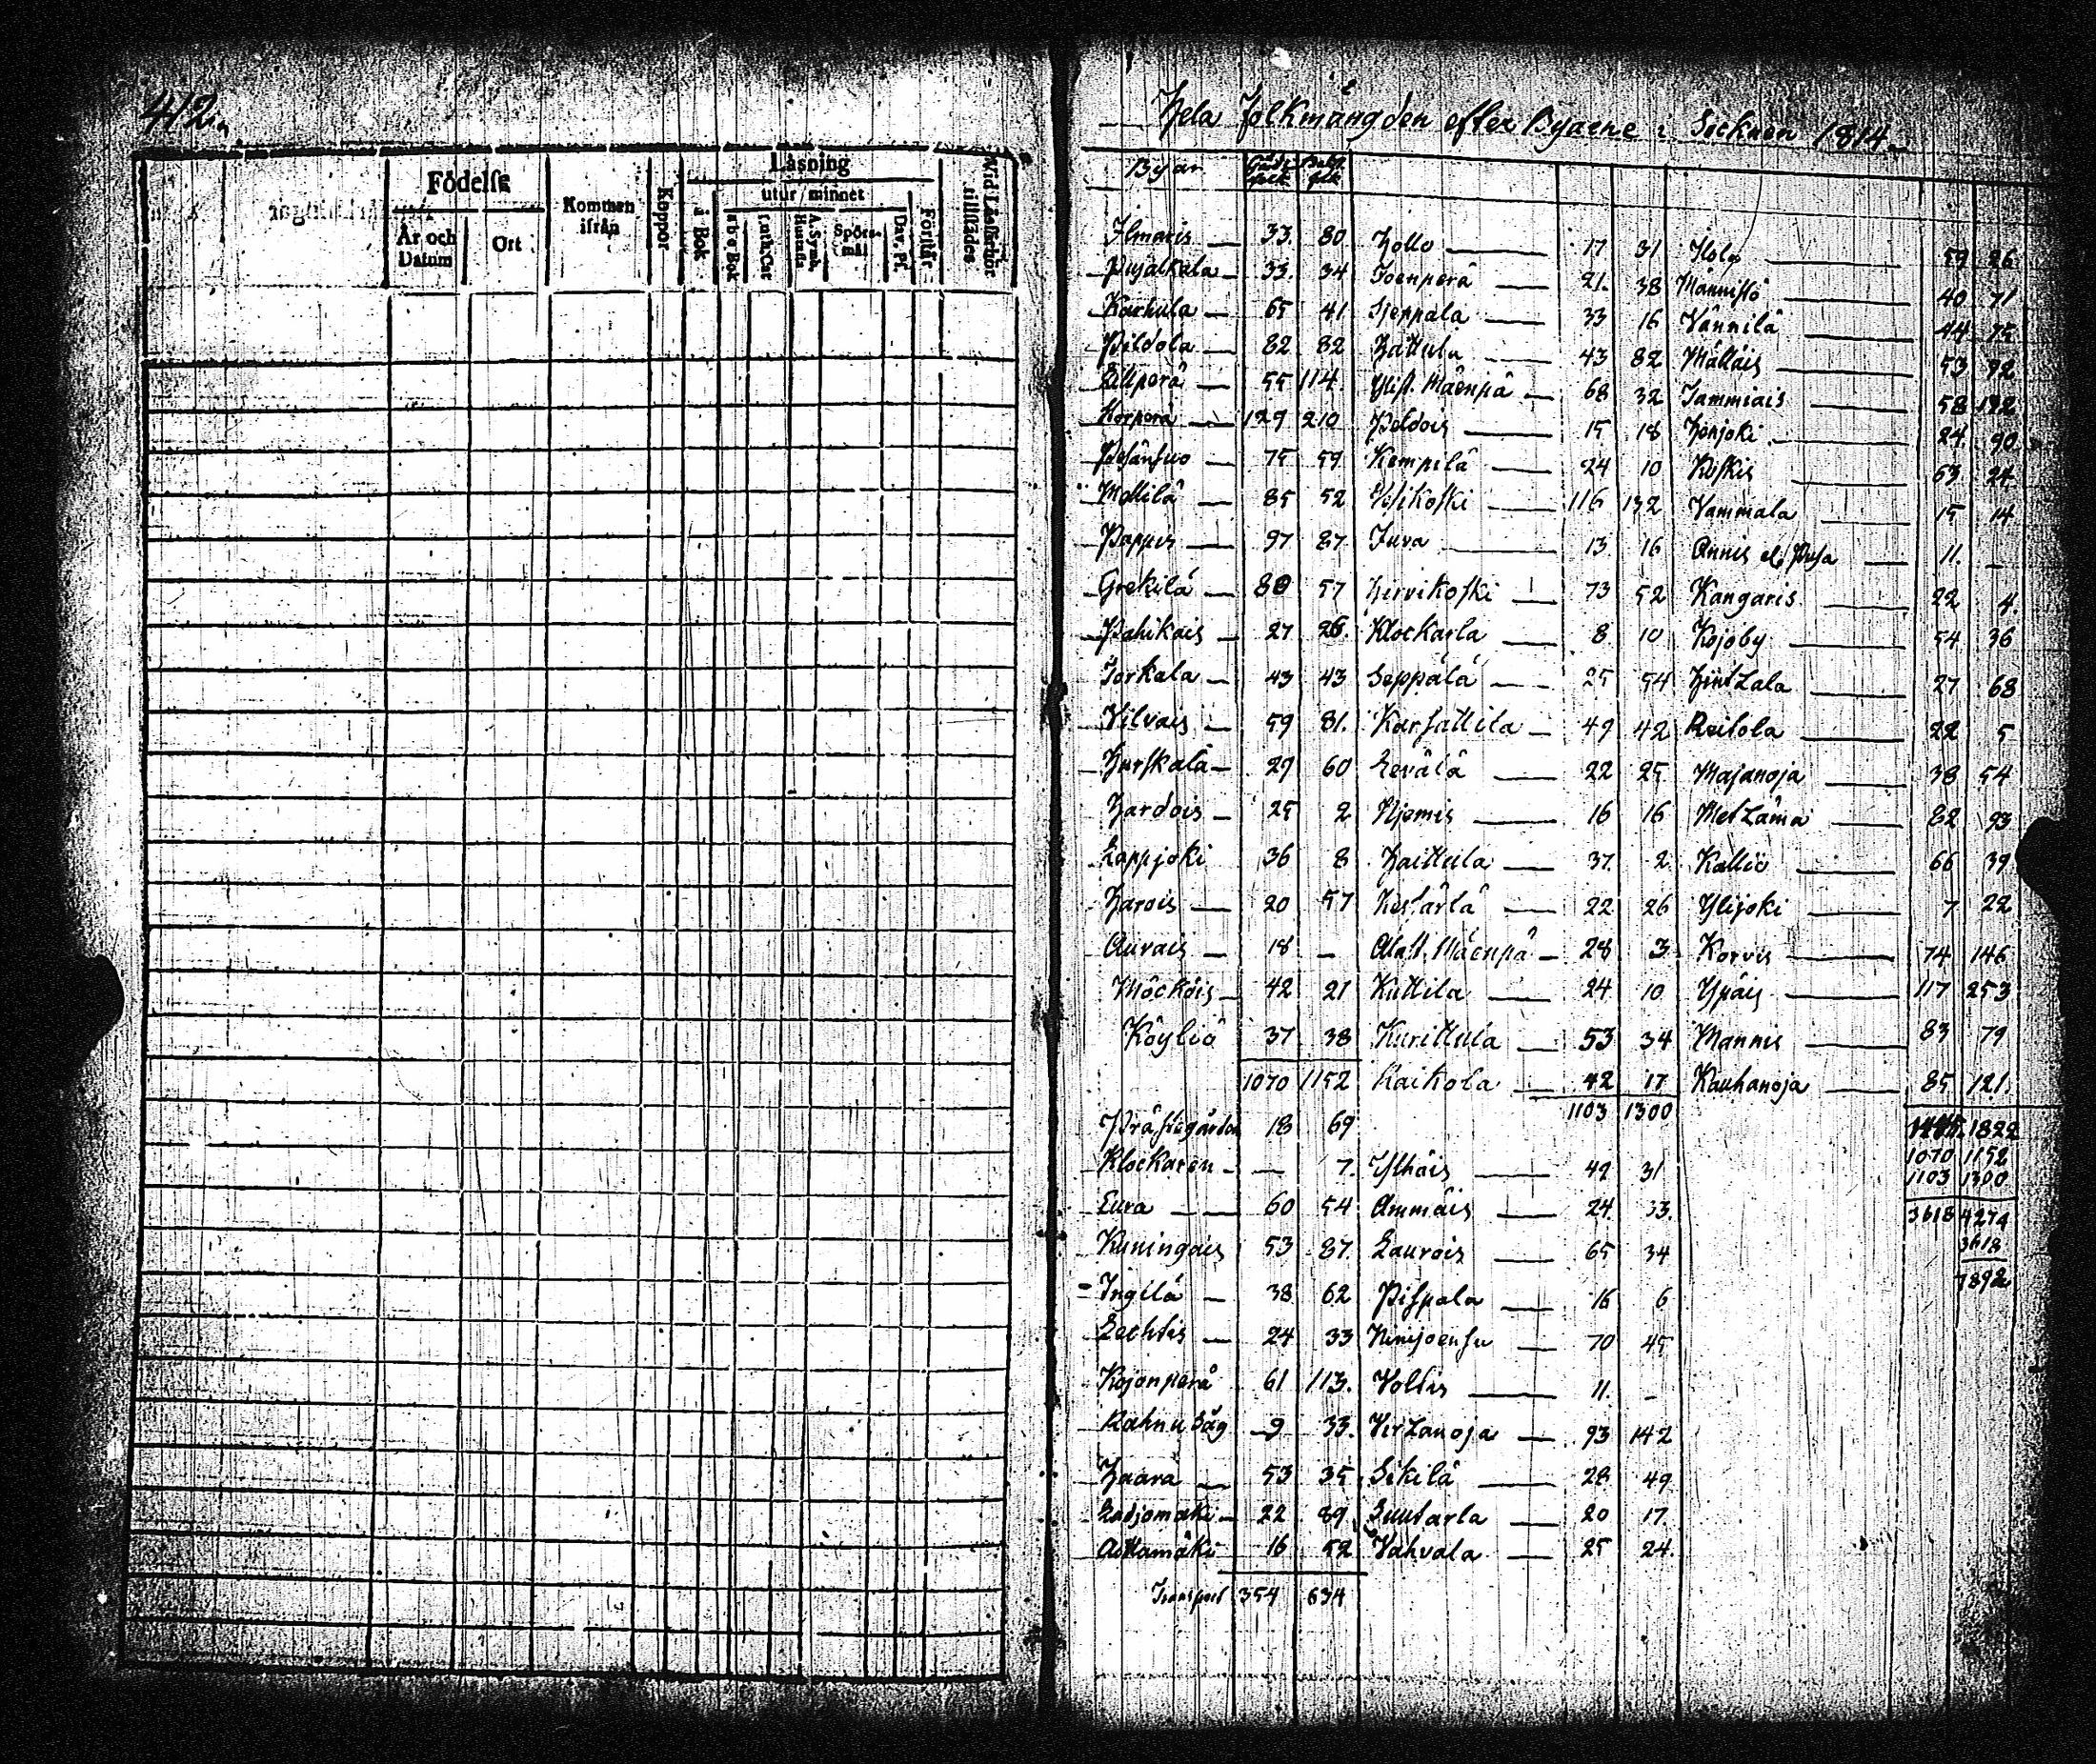 412.
Födelse
År och Datum
Ort
Kommen ifrån
Koppor
Läsning
utur minnet
i Bok
a b c Bok
Luth. Cat
A. Symb. Hustafla
Spörsmål
Dav. Ps.
Förstår
Vid Läsförhör tillstädes
Hela Folkmängden efter Byarne i Socknen 1814
Byar
Ilmaris 33. 80
Pujalkala 33. 34
Karhula 65 41
Pildola 82 82
Lillperä 55 114
Korperä 129 210
Pesänsuo 75 59
Mattila 85 52
Pappis 97 87
Grekilä 80 57
Pahikais 27 26.
Torkala 43 43
Vilvais 59 81.
Hurskala 29 60
Hardois 25 2
Lappjoki 36 8
Harois 20 57
Auvais 18 –
Möcköis 42 21
Köyliö 37 38
1070 1152
Prästegården 18 69
Klockaren – 7.
Eura 60 54
Kuningais 53 87.
Ingilä 38 62
Lechtis 24 33
Kojonperä 61 113.
Kahnu Såg 9 33.
Haara 53 35
Ladjomäki 22 89
Aittamäki 16 52
Transport 354 634
Hollo 17 31
Joenperä 21. 38
Sjeppälä 33 16
Hattula 43 82
Ylist. Mäenpä 68 32
Peldois 15 18
Kempilä 24 10
Vesikoski 116 132
Juva 13 16
Hirvikoski 73 52
Klockarla 8 10
Seppälä 25 54
Karsattila 49 42
Levälä 22 25
Njemis 16 16
Haittula 37. 2
Kestärlä 22 26
Alast. Mäenpä 28 3
Kuttila 24 10
Kurittula 53 34
Raikola 42 17
1103 1300
Ylhäis 49 31
Ammäis 24. 33.
Laurois 65 34
Pispala 16 6
Ninijoensu 70 45
Voltis 11. –
Virtzanoja 93 142
Sikilä 28 49
Suutarla 20 17
Vahvala 25 24.
Holo 59 26
Männistö 40 71
Vännilä 44 75
Mälläis 53 92
Tammiais 58 132
Hänjoki 24. 90
Koskis 63 24
Vammala 15 14
Annis el. Pusa 11. –
Kangaris 22 4.
Kojoby 54 36
Hintzala 27 68
Raitola 22 5
Majanoja 38 54
Metzämä 82 93
Kallio 66 39
Ylijoki 7 22
Korvis 74 146
Ypäis 117 253
Mannis 83 79
Kauhanoja 85 121.
1445. 1822
1070 1152
1103 1300
3618 4274
3618
7892